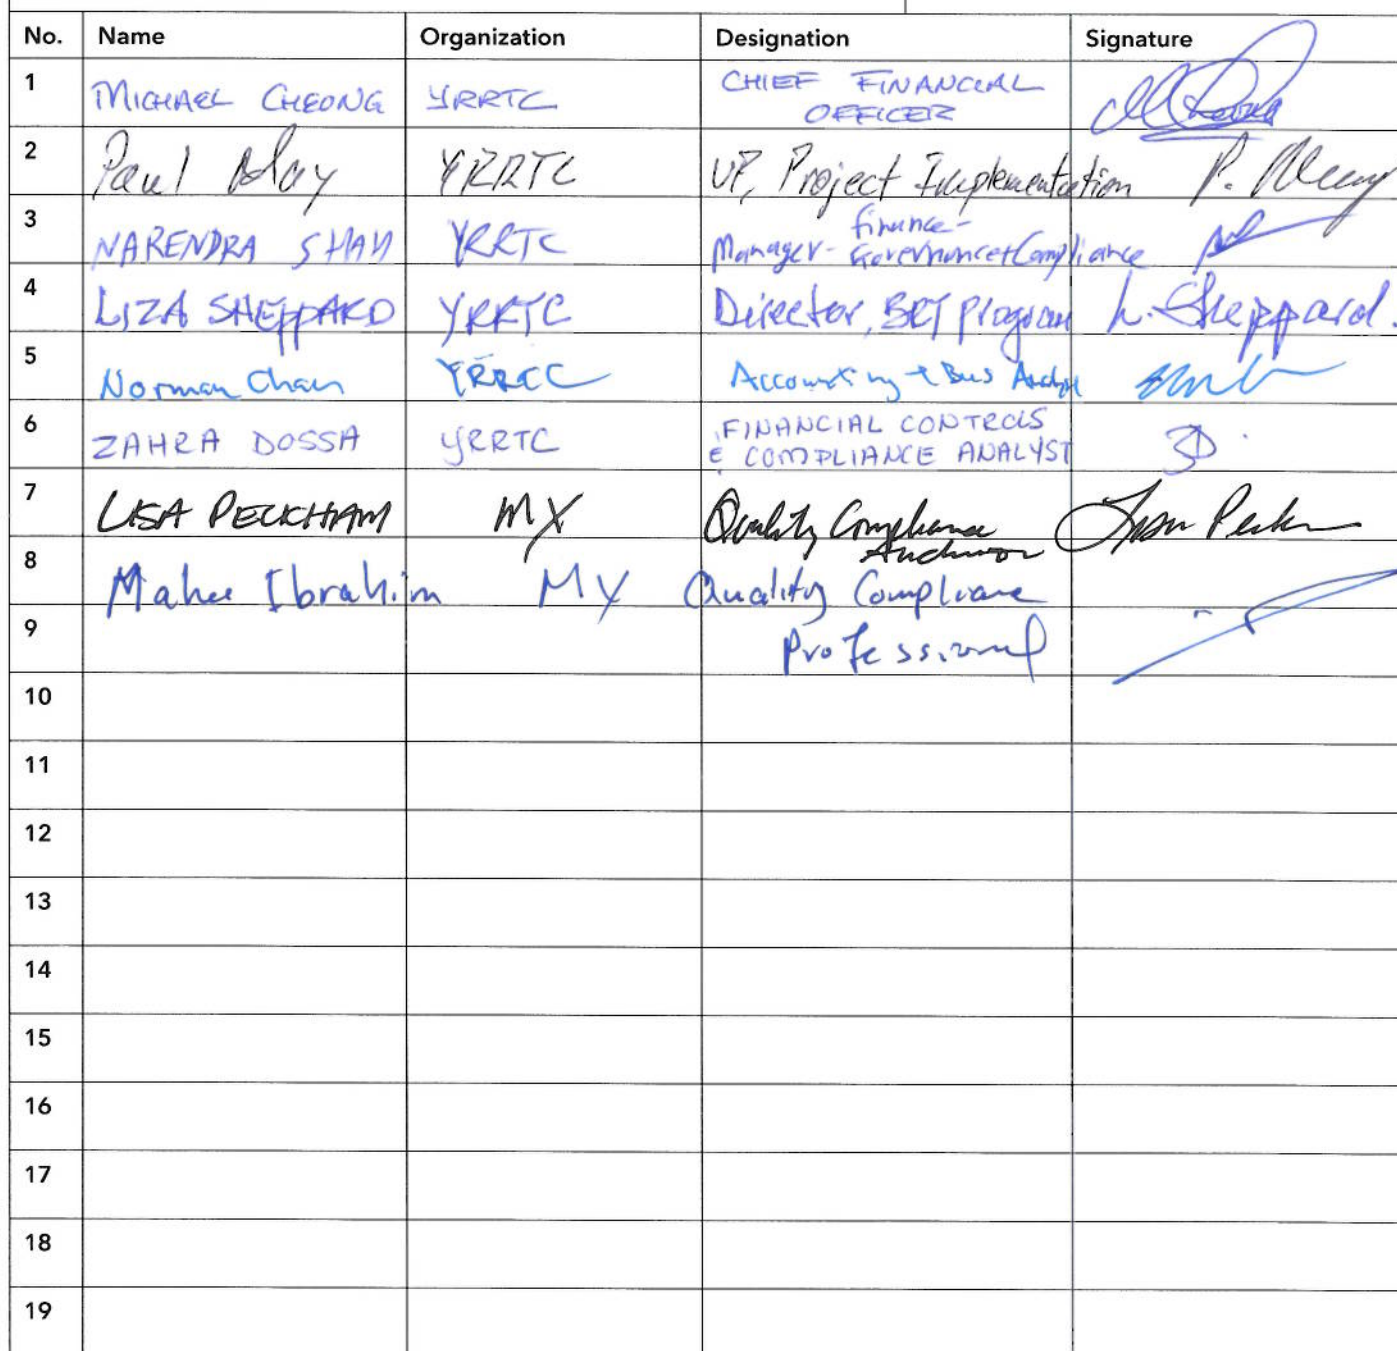 No. Name Organization Designation Signature
1 MICHAEL CHEONG YRRTC CHIEF FINANCIAL
OFFICER
2 Paul May YRRTC VP, Project Implementation P. May
3 NARENDRA SHAH YRRTC Manager - finance -
Governance + Compliance
4 LIZA SHEPPARD YRRTC Director, BRT Program L. Sheppard.
5 Norman Chan Accounting + Bus
6 ZAHRA DOSSA YRRTC FINANCIAL CONTROLS
& COMPLIANCE ANALYST ZD
7 LISA PECKHAM MX Quality Compliance
8 Ibrahim MX Quality Compliance
9 Professional
10
11
12
13
14
15
16
17
18
19